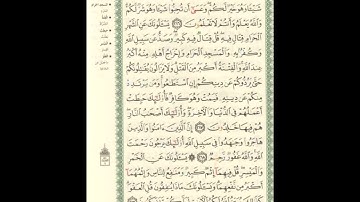 شَيْـًٔا وَهُوَ خَيْرٌ لَّكُمْ وَعَسَىٰٓ أَن تُحِبُّوا۟ شَيْـًٔا وَهُوَ شَرٌّ لَّكُمْ
وَٱللَّهُ يَعْلَمُ وَأَنتُمْ لَا تَعْلَمُونَ ۝٢١٦ يَسْـَٔلُونَكَ عَنِ ٱلشَّهْرِ
ٱلْحَرَامِ قِتَالٍ فِيهِ قُلْ قِتَالٌ فِيهِ كَبِيرٌ وَصَدٌّ عَن سَبِيلِ ٱللَّهِ
وَكُفْرٌۢ بِهِۦ وَٱلْمَسْجِدِ ٱلْحَرَامِ وَإِخْرَاجُ أَهْلِهِۦ مِنْهُ أَكْبَرُ
عِندَ ٱللَّهِ وَٱلْفِتْنَةُ أَكْبَرُ مِنَ ٱلْقَتْلِ وَلَا يَزَالُونَ يُقَـٰتِلُونَكُمْ
حَتَّىٰ يَرُدُّوكُمْ عَن دِينِكُمْ إِنِ ٱسْتَطَـٰعُوا۟ وَمَن يَرْتَدِدْ
مِنكُمْ عَن دِينِهِۦ فَيَمُتْ وَهُوَ كَافِرٌ فَأُو۟لَـٰٓئِكَ حَبِطَتْ
أَعْمَـٰلُهُمْ فِى ٱلدُّنْيَا وَٱلْـَٔاخِرَةِ وَأُو۟لَـٰٓئِكَ أَصْحَـٰبُ ٱلنَّارِ
هُمْ فِيهَا خَـٰلِدُونَ ۝٢١٧ إِنَّ ٱلَّذِينَ ءَامَنُوا۟ وَٱلَّذِينَ
هَاجَرُوا۟ وَجَـٰهَدُوا۟ فِى سَبِيلِ ٱللَّهِ أُو۟لَـٰٓئِكَ يَرْجُونَ رَحْمَتَ
ٱللَّهِ وَٱللَّهُ غَفُورٌ رَّحِيمٌ ۝٢١٨ يَسْـَٔلُونَكَ عَنِ ٱلْخَمْرِ
وَٱلْمَيْسِرِ قُلْ فِيهِمَآ إِثْمٌ كَبِيرٌ وَمَنَـٰفِعُ لِلنَّاسِ وَإِثْمُهُمَآ
أَكْبَرُ مِن نَّفْعِهِمَا وَيَسْـَٔلُونَكَ مَاذَا يُنفِقُونَ قُلِ ٱلْعَفْوَ